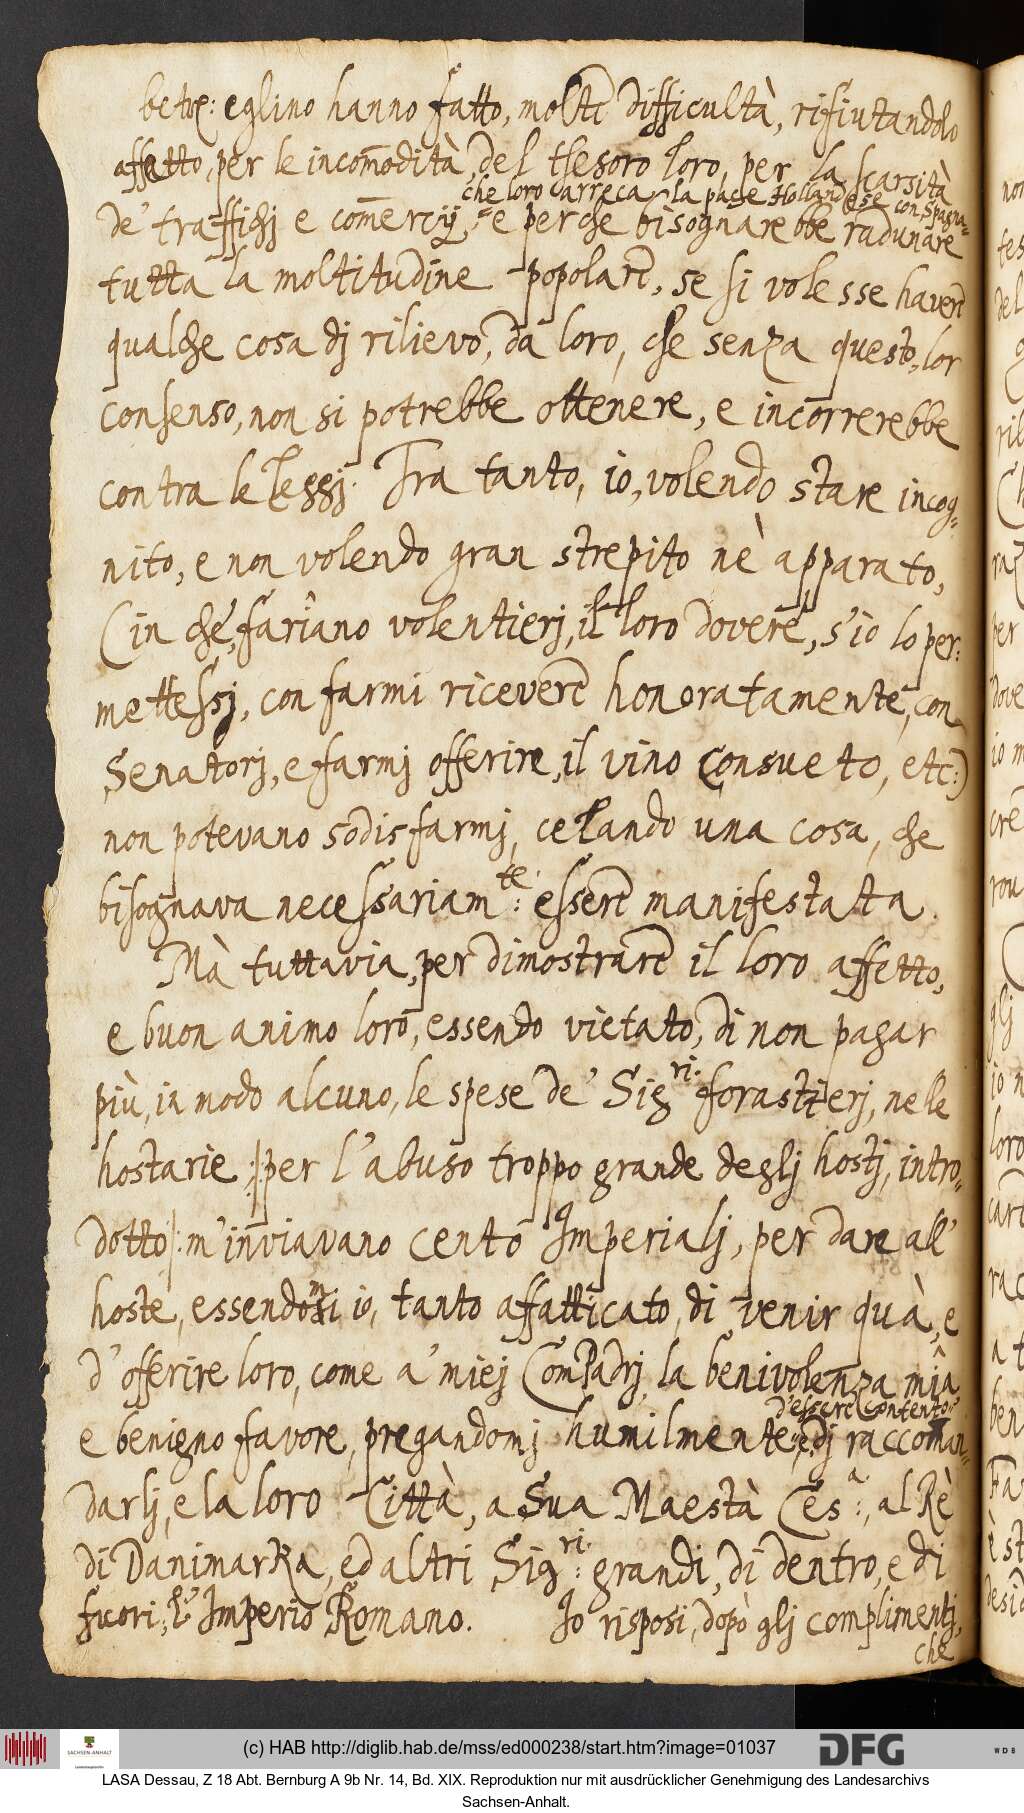 eglino hanno fatto, molte difficultà, rifiutandolo
affatto, per le incom̄odità, del thesoro loro, per la scarsità
che loro arreca, la pace Hollandese con Spagna=
de' traffichj e com̄ercij, e perche bisognarebbe radunare
tutta la moltitudine popolare, se si volesse havere
qualche cosa dj rilievo, da loro, che senza questo, lor
consenso, non si potrebbe ottenere, e incorrerebbe
contra le leggj. Fra tanto, io, volendo stare incog=
nito, e non volendo gran strepito nè apparato,
(in che, fariano volentierj, il loro dovere, s'io lo per:
mettessj, con farmi ricevere honoratamente, con
Senatorj, e farmj offerire, il vino consueto, etc:)
non potevano sodisfarmj, celando una cosa, che
bisognava necessariam:te essere manifestata.
Mà tuttavia, per dimostrare il loro affetto,
e buon animo loro, essendo vietato, di non pagar
più, in modo alcuno, le spese de' Sig:ri forastierj, nelle
hostarie /: per l'abuso troppo grande deglj hostj, intro=
dotto :/ m'inviavano cento Imperialj, per dare all'
hoste, essendomi io, tanto affatticato, di venir quà, e
d'offerire loro, come a' miej ComPadrj, la benivolenza mîa
d'essere contento,
e benigno favore, pregandomj humilmente, e dj raccoman=
darlj, e la loro Città, a Sua Maestà Ces:a, al Rè
di Danimarka, ed altri Sig:ri grandi, di dentro, e di
fuori, l'Imperio Romano. Io risposi, dopò glj complimentj,
che
(c) HAB http://diglib.hab.de/mss/ed000238/start.htm?image=01037
SACHSEN-ANHALT
DFG
WDB
LASA Dessau, Z 18 Abt. Bernburg A 9b Nr. 14, Bd. XIX. Reproduktion nur mit ausdrücklicher Genehmigung des Landesarchivs
Sachsen-Anhalt.